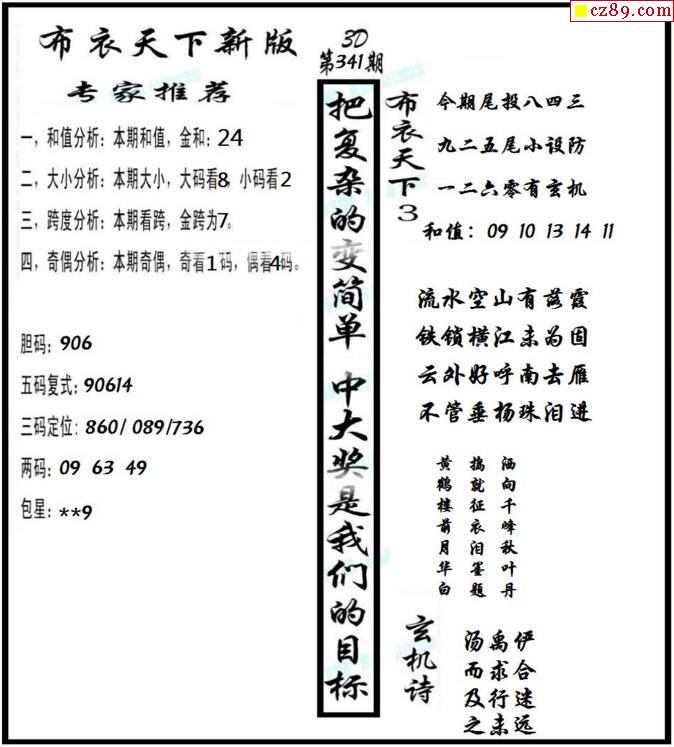 cz89.com
布衣天下新版
专家推荐
3D
第341期
一，和值分析：本期和值，金和：24
二，大小分析：本期大小，大码看8，小码看2
三，跨度分析：本期看跨，金跨为7。
四，奇偶分析：本期奇偶，奇看1码，偶看4码。
胆码：906
五码复式：90614
三码定位：860/ 089/736
两码：09 63 49
包星：**9
把复杂的变简单 中大奖是我们的目标
布衣天下3
今期尾投八四三
九二五尾小设防
一二六零有玄机
和值：09 10 13 14 11
流水空山有落霞
铁锁横江未为固
云外好呼南去雁
不管垂杨珠泪进
黄鹤楼前月华白
捣就征衣泪墨题
洒向千峰秋叶丹
玄机诗
汤禹俨
而求合
及行迷
之未远